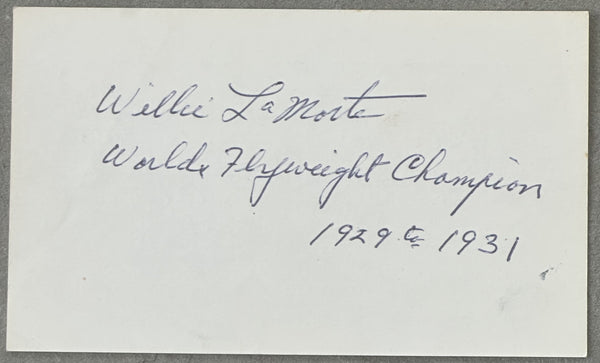 Willie La Morte
Worlds Flyweight Champion
1929 to 1931